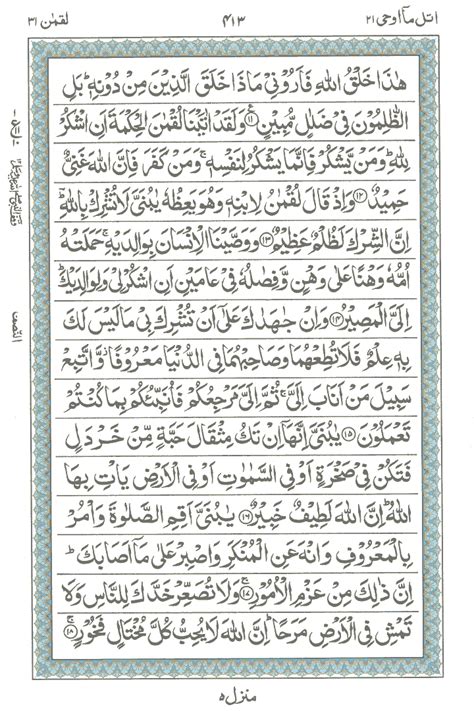 لقمٰن ٣١ ٤١٣ اتل مآاوحی ٢١
هٰذَا خَلْقُ اللّٰهِ فَاَرُوْنِیْ مَاذَا خَلَقَ الَّذِیْنَ مِنْ دُوْنِهٖ ؕ بَلِ
الظّٰلِمُوْنَ فِیْ ضَلٰلٍ مُّبِیْنٍ ﴿١١﴾ وَلَقَدْ اٰتَیْنَا لُقْمٰنَ الْحِكْمَةَ اَنِ اشْكُرْ
لِلّٰهِ ؕ وَمَنْ یَّشْكُرْ فَاِنَّمَا یَشْكُرُ لِنَفْسِهٖ ۚ وَمَنْ كَفَرَ فَاِنَّ اللّٰهَ غَنِیٌّ
حَمِیْدٌ ﴿١٢﴾ وَاِذْ قَالَ لُقْمٰنُ لِابْنِهٖ وَهُوَ یَعِظُهٗ یٰبُنَیَّ لَا تُشْرِكْ بِاللّٰهِ ؔؕ
اِنَّ الشِّرْكَ لَظُلْمٌ عَظِیْمٌ ﴿١٣﴾ وَوَصَّیْنَا الْاِنْسَانَ بِوَالِدَیْهِ ۚ حَمَلَتْهُ
اُمُّهٗ وَهْنًا عَلٰی وَهْنٍ وَّفِصٰلُهٗ فِیْ عَامَیْنِ اَنِ اشْكُرْ لِیْ وَلِوَالِدَیْكَ ؕ
اِلَیَّ الْمَصِیْرُ ﴿١٤﴾ وَاِنْ جَاهَدٰكَ عَلٰٓی اَنْ تُشْرِكَ بِیْ مَا لَیْسَ لَكَ
بِهٖ عِلْمٌ فَلَا تُطِعْهُمَا وَصَاحِبْهُمَا فِی الدُّنْیَا مَعْرُوْفًا ؗ وَّاتَّبِعْ
سَبِیْلَ مَنْ اَنَابَ اِلَیَّ ۚ ثُمَّ اِلَیَّ مَرْجِعُكُمْ فَاُنَبِّئُكُمْ بِمَا كُنْتُمْ
تَعْمَلُوْنَ ﴿١٥﴾ یٰبُنَیَّ اِنَّهَاۤ اِنْ تَكُ مِثْقَالَ حَبَّةٍ مِّنْ خَرْدَلٍ
فَتَكُنْ فِیْ صَخْرَةٍ اَوْ فِی السَّمٰوٰتِ اَوْ فِی الْاَرْضِ یَاْتِ بِهَا
اللّٰهُ ؕ اِنَّ اللّٰهَ لَطِیْفٌ خَبِیْرٌ ﴿١٦﴾ یٰبُنَیَّ اَقِمِ الصَّلٰوةَ وَاْمُرْ
بِالْمَعْرُوْفِ وَانْهَ عَنِ الْمُنْكَرِ وَاصْبِرْ عَلٰی مَاۤ اَصَابَكَ ؕ
اِنَّ ذٰلِكَ مِنْ عَزْمِ الْاُمُوْرِ ﴿١٧﴾ وَلَا تُصَعِّرْ خَدَّكَ لِلنَّاسِ وَلَا
تَمْشِ فِی الْاَرْضِ مَرَحًا ؕ اِنَّ اللّٰهَ لَا یُحِبُّ كُلَّ مُخْتَالٍ فَخُوْرٍ ﴿١٨﴾
منزل ٥
النصف